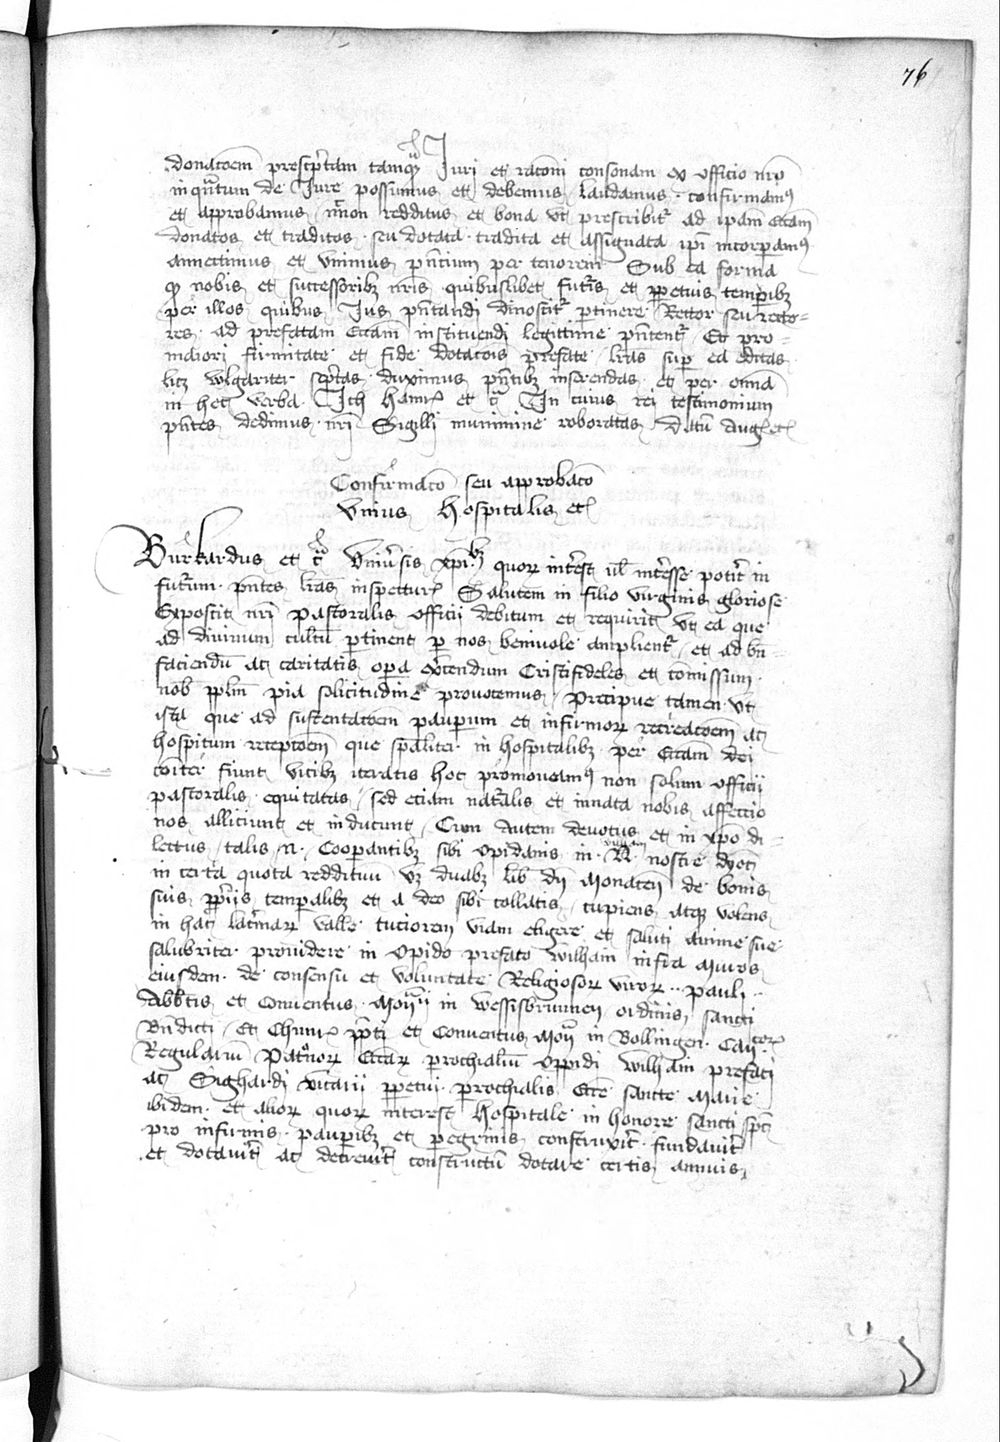 76
donacoem prescptam tamq Juri et raconi consonam ex officio nro
inqntum de Jure possumus et debemus laudamus confirmamus
et approbamus / nnon redditus et bona vt prescribitr ad ipam eccam
donatos et traditos seu dotata tradita et assignata ipi incorpamus
annectimus et vnimus pntium per tenorem Sub ea forma
q nobis et successoribz nris quibuslibet futris et ppetuis tempibz
per illos quibus Jus pntandi dinoscitr ptinere Rector seu recto=
res ad prefatam eccam instituendi legittime pntentr Et pro=
maiori firmitate et fide dotacois prefate lras sup ea editas
licz wlgariter scptas duximus pntibz inserendas et per omia
in hec verba Ich Hannr et c In cuius rei testimonium
pntes dedimus nri Sigilli munimine roboratas Datu Aug etc
Confirmaco seu approbaco
vnius Hospitalis etc
Burkardus et c Vniusis xpi quor intest ul intesse potit in
futrum pntes lras inspectur Salutem in filio virginis gloriose
Exposcit nri Pastoralis officii debitum et requirit vt ea que
ad diuinum cultu ptinent p nos beniuole amplientr et ad bn=
faciendu ac caritatis opa excendum Cristifideles et comissum
nob pplm pia solicitudine prouocemus Precipue tamen vt
ista que ad sustentacoem paupum et infirmor recreacoem ac
hospitum recepcoem que spaliter in hospitalibz per eccam dei
coiter fiunt vicibz iteratis hoc promoueamus non solum officii
pastoralis equitatas sed eciam natralis et innata nobis affeccio
nos alliciunt et inducunt / Cum autem deuotus et in xpo di=
lectus talis N. Cooperantibz sibi opidanis in N. nostre dyoc
in certa quota reddituu vz duabz lib dn Monacen de bonis
suis ppriis tempalibz et a deo sibi collatis cupiens atqz volens
in hac lacrimar valle tuciorem viam eligere et saluti anime sue
salubriter prouidere in opido prefato wilham infra muros
eiusdem de consensu et voluntate Religiosor viror .. Pauli ..
Abbtis et Conuentus Mon in wessisbrunnen ordinis sancti
Bndicti Et Chunr ppti et Conuentus Mon in Bollingen Can
Regulariu Patnor eccar prochialiu oppidi wilham prefati
ac Sighardi vicarii ppetui prochialis ecce sancte Marie
ibidem et alior quor interest hospitale in honore sancti spc
pro infirmis paupibz et pegrinis construxit fundauit
et dotauit ac decreuit constructu dotare certis annuis